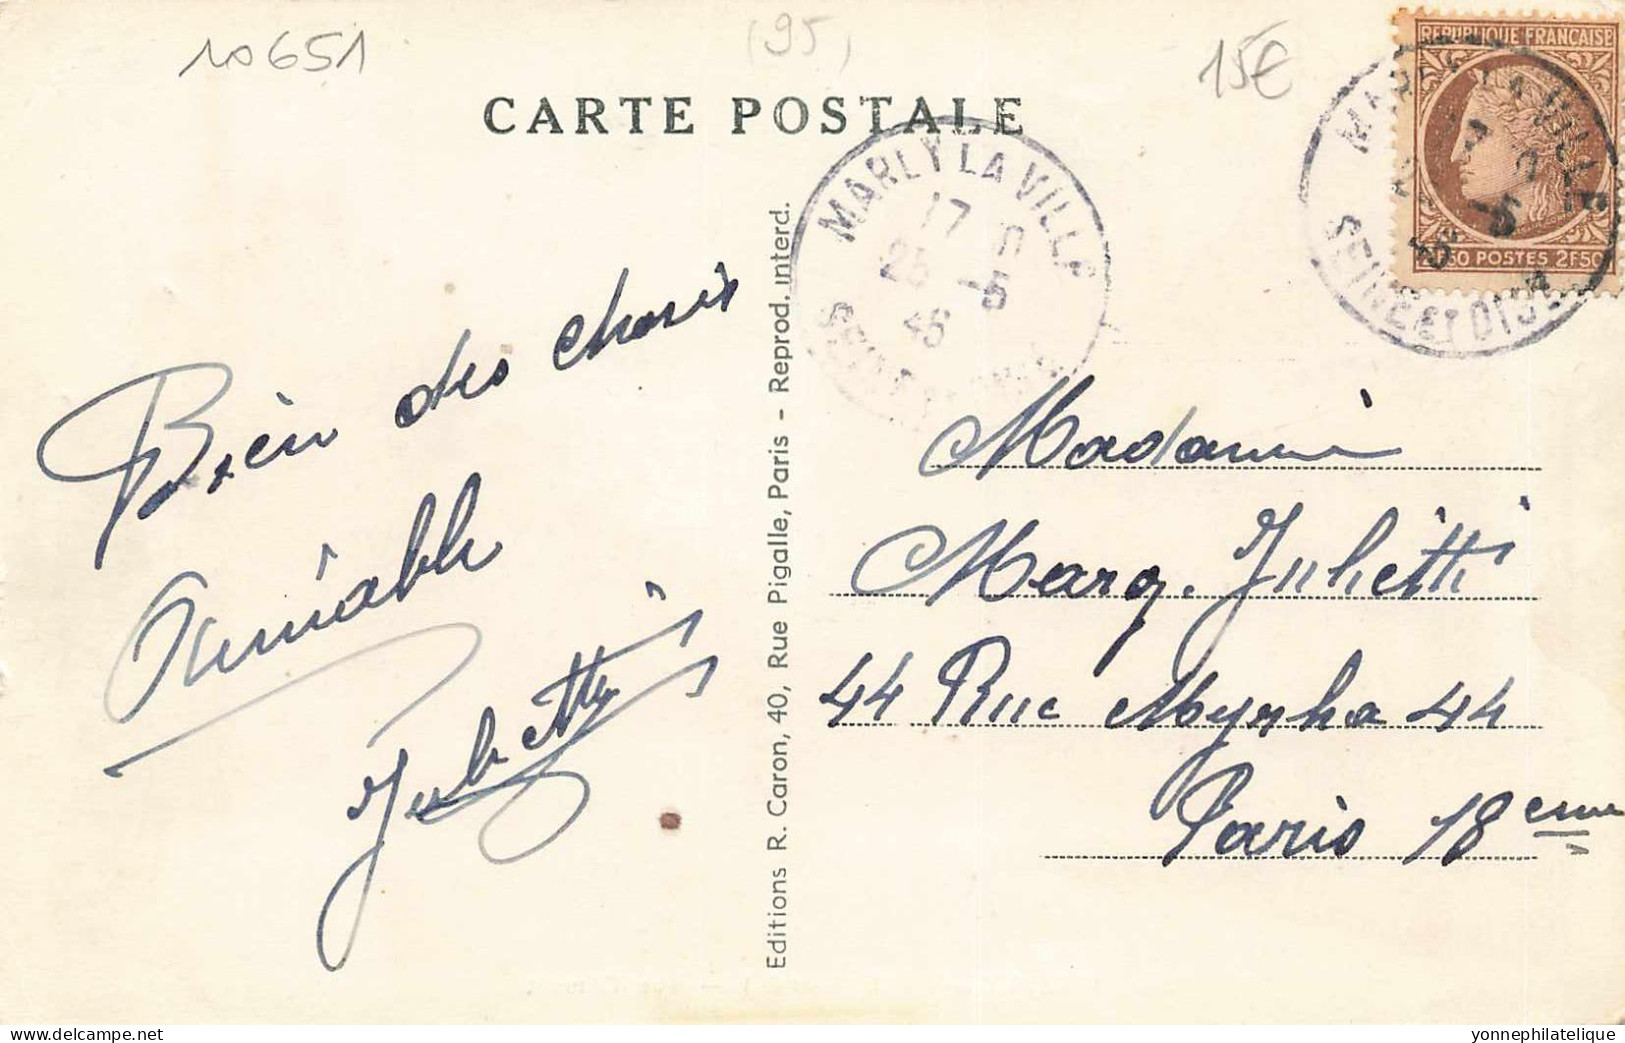 10651
(95)
15€
CARTE POSTALE
REPUBLIQUE FRANÇAISE
POSTES 2F50
MARLY LA VILLE
17
25 -5
SEINE ET OISE
MARLY LA VILLE
-5
SEINE ET OISE
Bien des choses
Aimable
Juliette
Editions R. Caron, 40, Rue Pigalle, Paris - Reprod. interd.
Madame
Marg. Juliette
44 Rue Myrha 44
Paris 18eme
yonnephilatelique